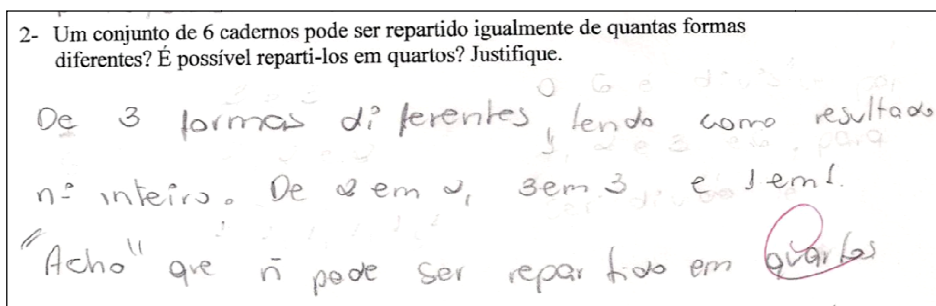 2- Um conjunto de 6 cadernos pode ser repartido igualmente de quantas formas
diferentes? É possível reparti-los em quartos? Justifique.
De 3 formas diferentes, tendo como resultado
nº inteiro. De 2 em 2, 3 em 3 e 1 em 1.
"Acho" que ñ pode ser repartido em quartos